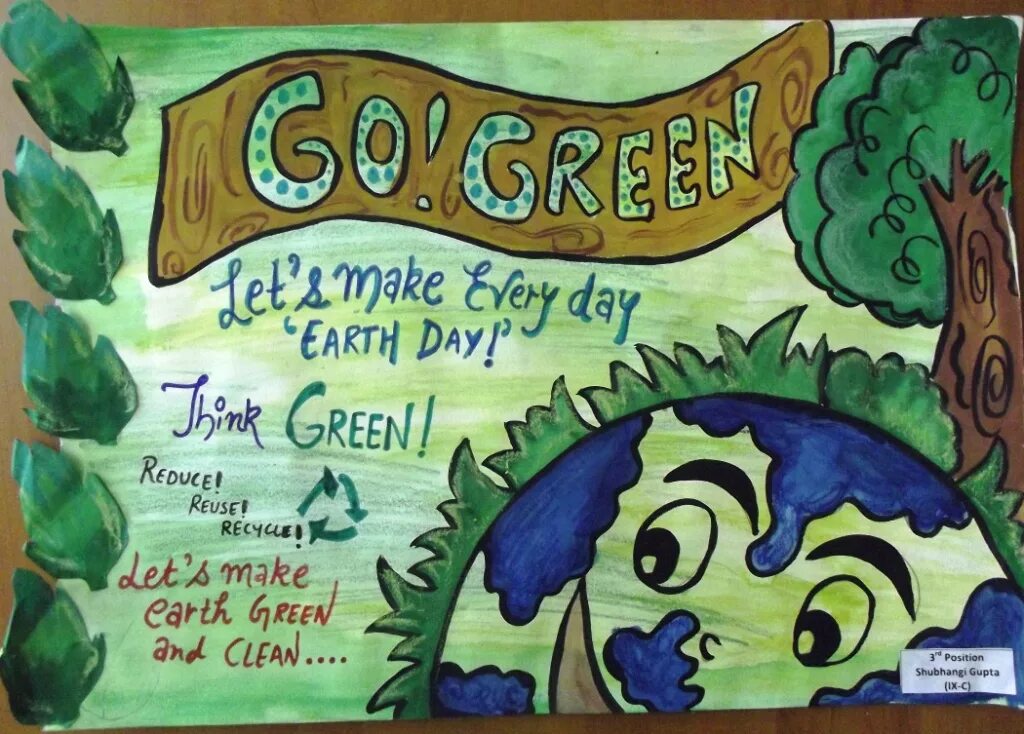 GO! GREEN
Let's make Every day
'EARTH DAY!'
Think GREEN!
REDUCE!
REUSE!
RECYCLE!
Let's make
earth GREEN
and CLEAN....
3rd Position
Shubhangi Gupta
(IX-C)